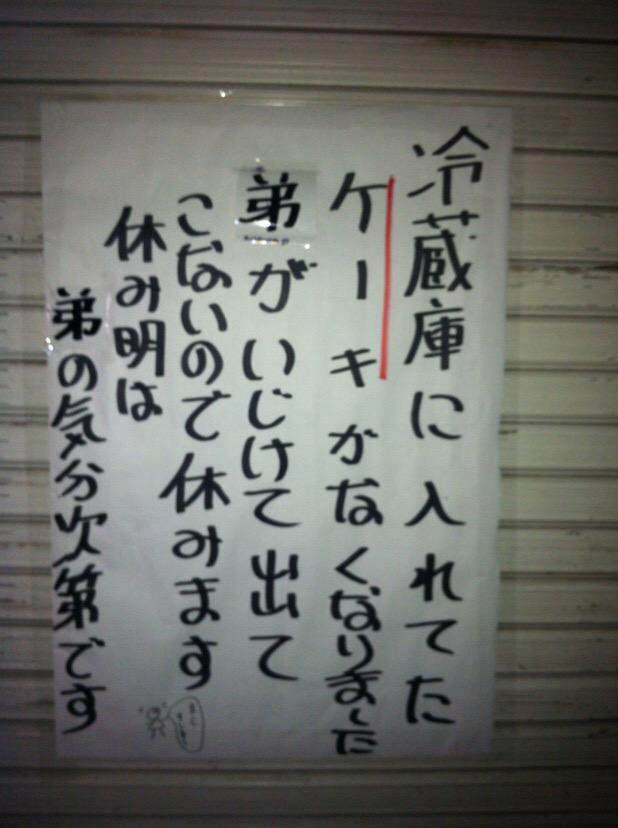 冷蔵庫に入れてた
ケーキがなくなりました
弟がいじけて出て
こないので休みます
休み明は
弟の気分次第です